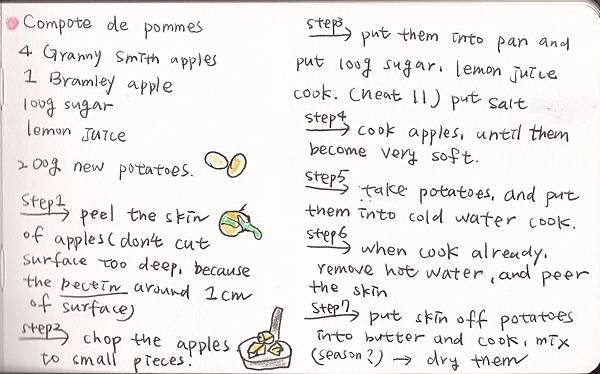 Compote de pommes
4 Granny Smith apples
1 Bramley apple
100g sugar
lemon Juice
200g new potatoes.
Step1 → peel the skin
of apples (don't cut
surface too deep, because
the pectin around 1cm
of surface)
step2 → chop the apples
to small pieces.
step3 → put them into pan and
put 100g sugar, lemon juice
cook. (heat 11) put salt
step4 → cook apples, until them
become very soft.
step5 → take potatoes, and put
them into cold water cook.
step6 → when cook already,
remove hot water, and peer
the skin
Step7 → put skin off potatoes
into butter and cook, mix
(season?) → dry them